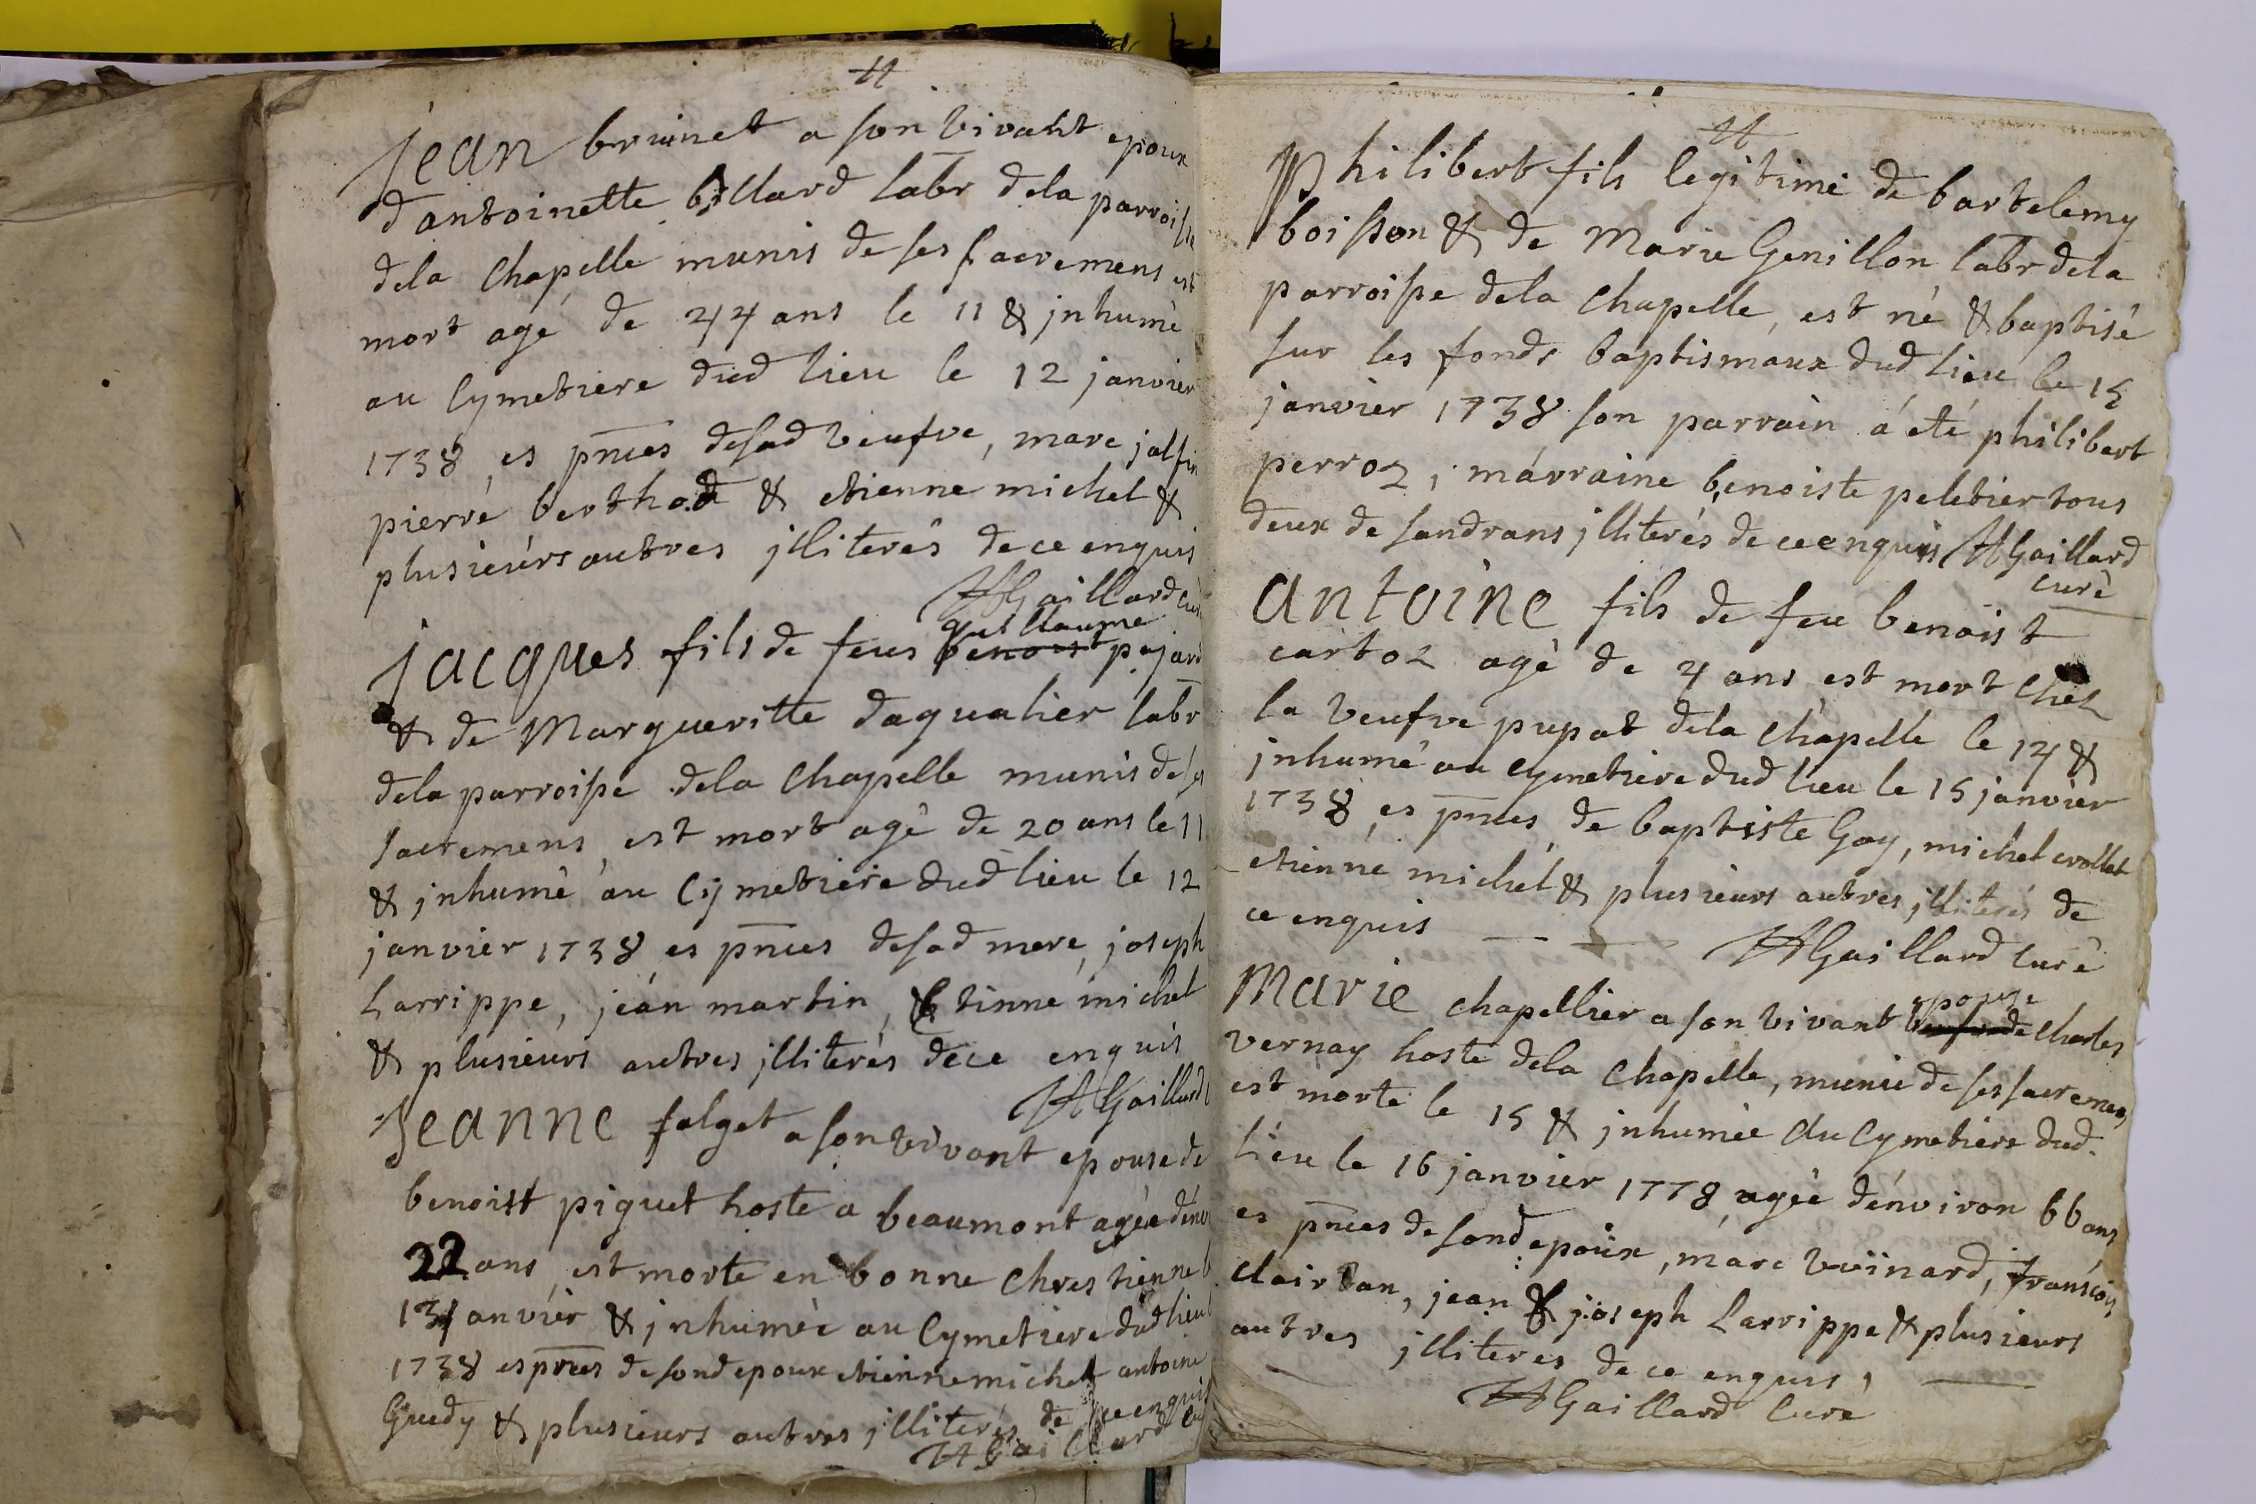 jean bruinet a son vivant epoux
d'antoinette billard labr dela parroisse
dela Chapelle munis de ses sacremens est
mort agé de 44 ans le 11 & jnhumé
au Cymetiere dud lieu le 12 janvier
1738, es pnces desad veufve, marc
pierre berthod & etienne michel &
plusieurs autres jlliterés de ce enquis
Gaillard curé
guillaume
jacques fils de feus benoist pajard
& de Margueritte daqualier labr
dela parroisse dela Chapelle munis de ses
sacremens, est mort agé de 20 ans le 11
& jnhumé au Cymetiere dud lieu le 12
janvier 1738 es pnces desad mere, joseph
Larrippe, jean martin, Etinne michel
& plusieurs autres jlliterés dece enquis
Gaillard
Jeanne falget a son vivant epouse de
benoist piquet hoste a beaumont agée d'env
22 ans, est morte en bonne Chrestienne
13 janvier & jnhumée au Cymetiere dud lieu
1738 es pnces de sond epoux etienne michel antoine
Guedy & plusieurs autres jlliterés de ce enquis
Gaillard
Philibert fils legitime de bartelemy
boisson & de Marie Genillon labr dela
parroisse dela Chapelle, est né & baptisé
sur les fonds baptismaux dud lieu le 15
janvier 1738 son parrain á eté philibert
perroz, marraine benoiste peletier tous
deux de sandrans jlliterés de ce enquis Gaillard
curé
antoine fils de feu benoist
cartoz agé de 4 ans est mort chez
la veufve pupat dela Chapelle le 14 &
jnhumé au Cymetiere dud lieu le 15 janvier
1738, es pnces de baptiste Gay, michel crollet
etienne michel & plusieurs autres jlliterés de
ce enquis
Gaillard curé
epouse
Marie chapellier a son vivant veufve de Charles
vernay hoste dela Chapelle, munie de ses sacremens,
est morte le 15 & jnhumée au Cymetiere dud.
Lieu le 16 janvier 1778 agée d'environ 66 ans
es pnces de sond epoux, marc vuinard, francois
clairtan, jean & joseph Larrippe & plusieurs
autres jlliteres de ce enquis,
Gaillard Curé